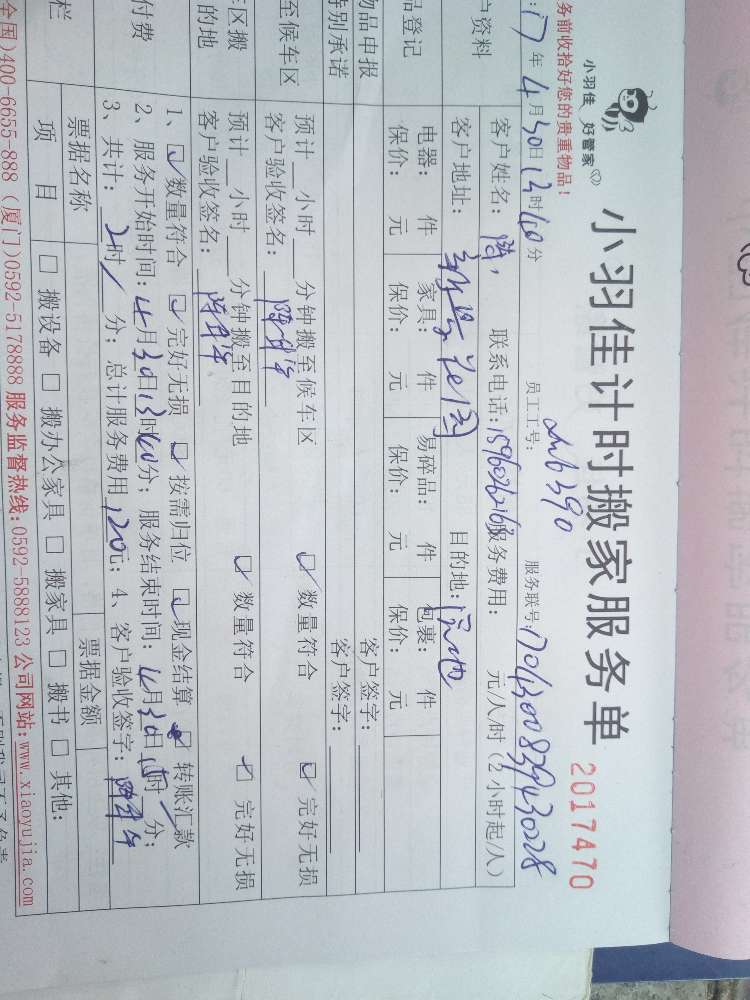 小羽佳 好管家
小羽佳计时搬家服务单
2017470
务前收拾好您的贵重物品!
17年4月30日13时60分 员工工号: 服务联号:
户资料
客户姓名: 联系电话: 服务费用: 元/人时(2小时起/人)
客户地址: 目的地:
品登记
电器: 件 家具: 件 易碎品: 件 包裹: 件
保价: 元 保价: 元 保价: 元 保价: 元
物品申报 客户签字:
特别承诺 客户签字:
至候车区
预计 小时 分钟搬至候车区 ☑ 数量符合 ☑ 完好无损
客户验收签名:
车区搬
的地
预计 小时 分钟搬至目的地 ☑ 数量符合 ☑ 完好无损
客户验收签名:
付费
1、☑ 数量符合 ☑ 完好无损 ☑ 按需归位 ☑ 现金结算 ☑ 转账汇款
2、服务开始时间: 4月30日13时60分; 服务结束时间: 4月30日15时 分;
3、共计: 2时 分; 总计服务费用 120元; 4、客户验收签字:
栏
票据名称 票据金额
项 目 □ 搬设备 □ 搬办公家具 □ 搬家具 □ 搬书 □ 其他:
全国)400-6655-888 (厦门)0592-5178888 服务监督热线:0592-5888123 公司网站:www.xiaoyujia.com